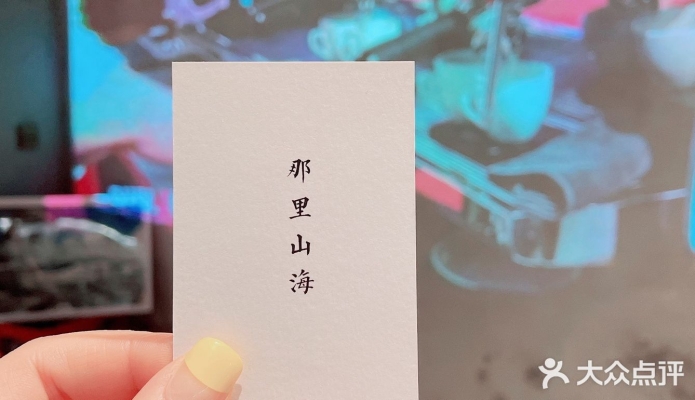 那里山海
大众点评